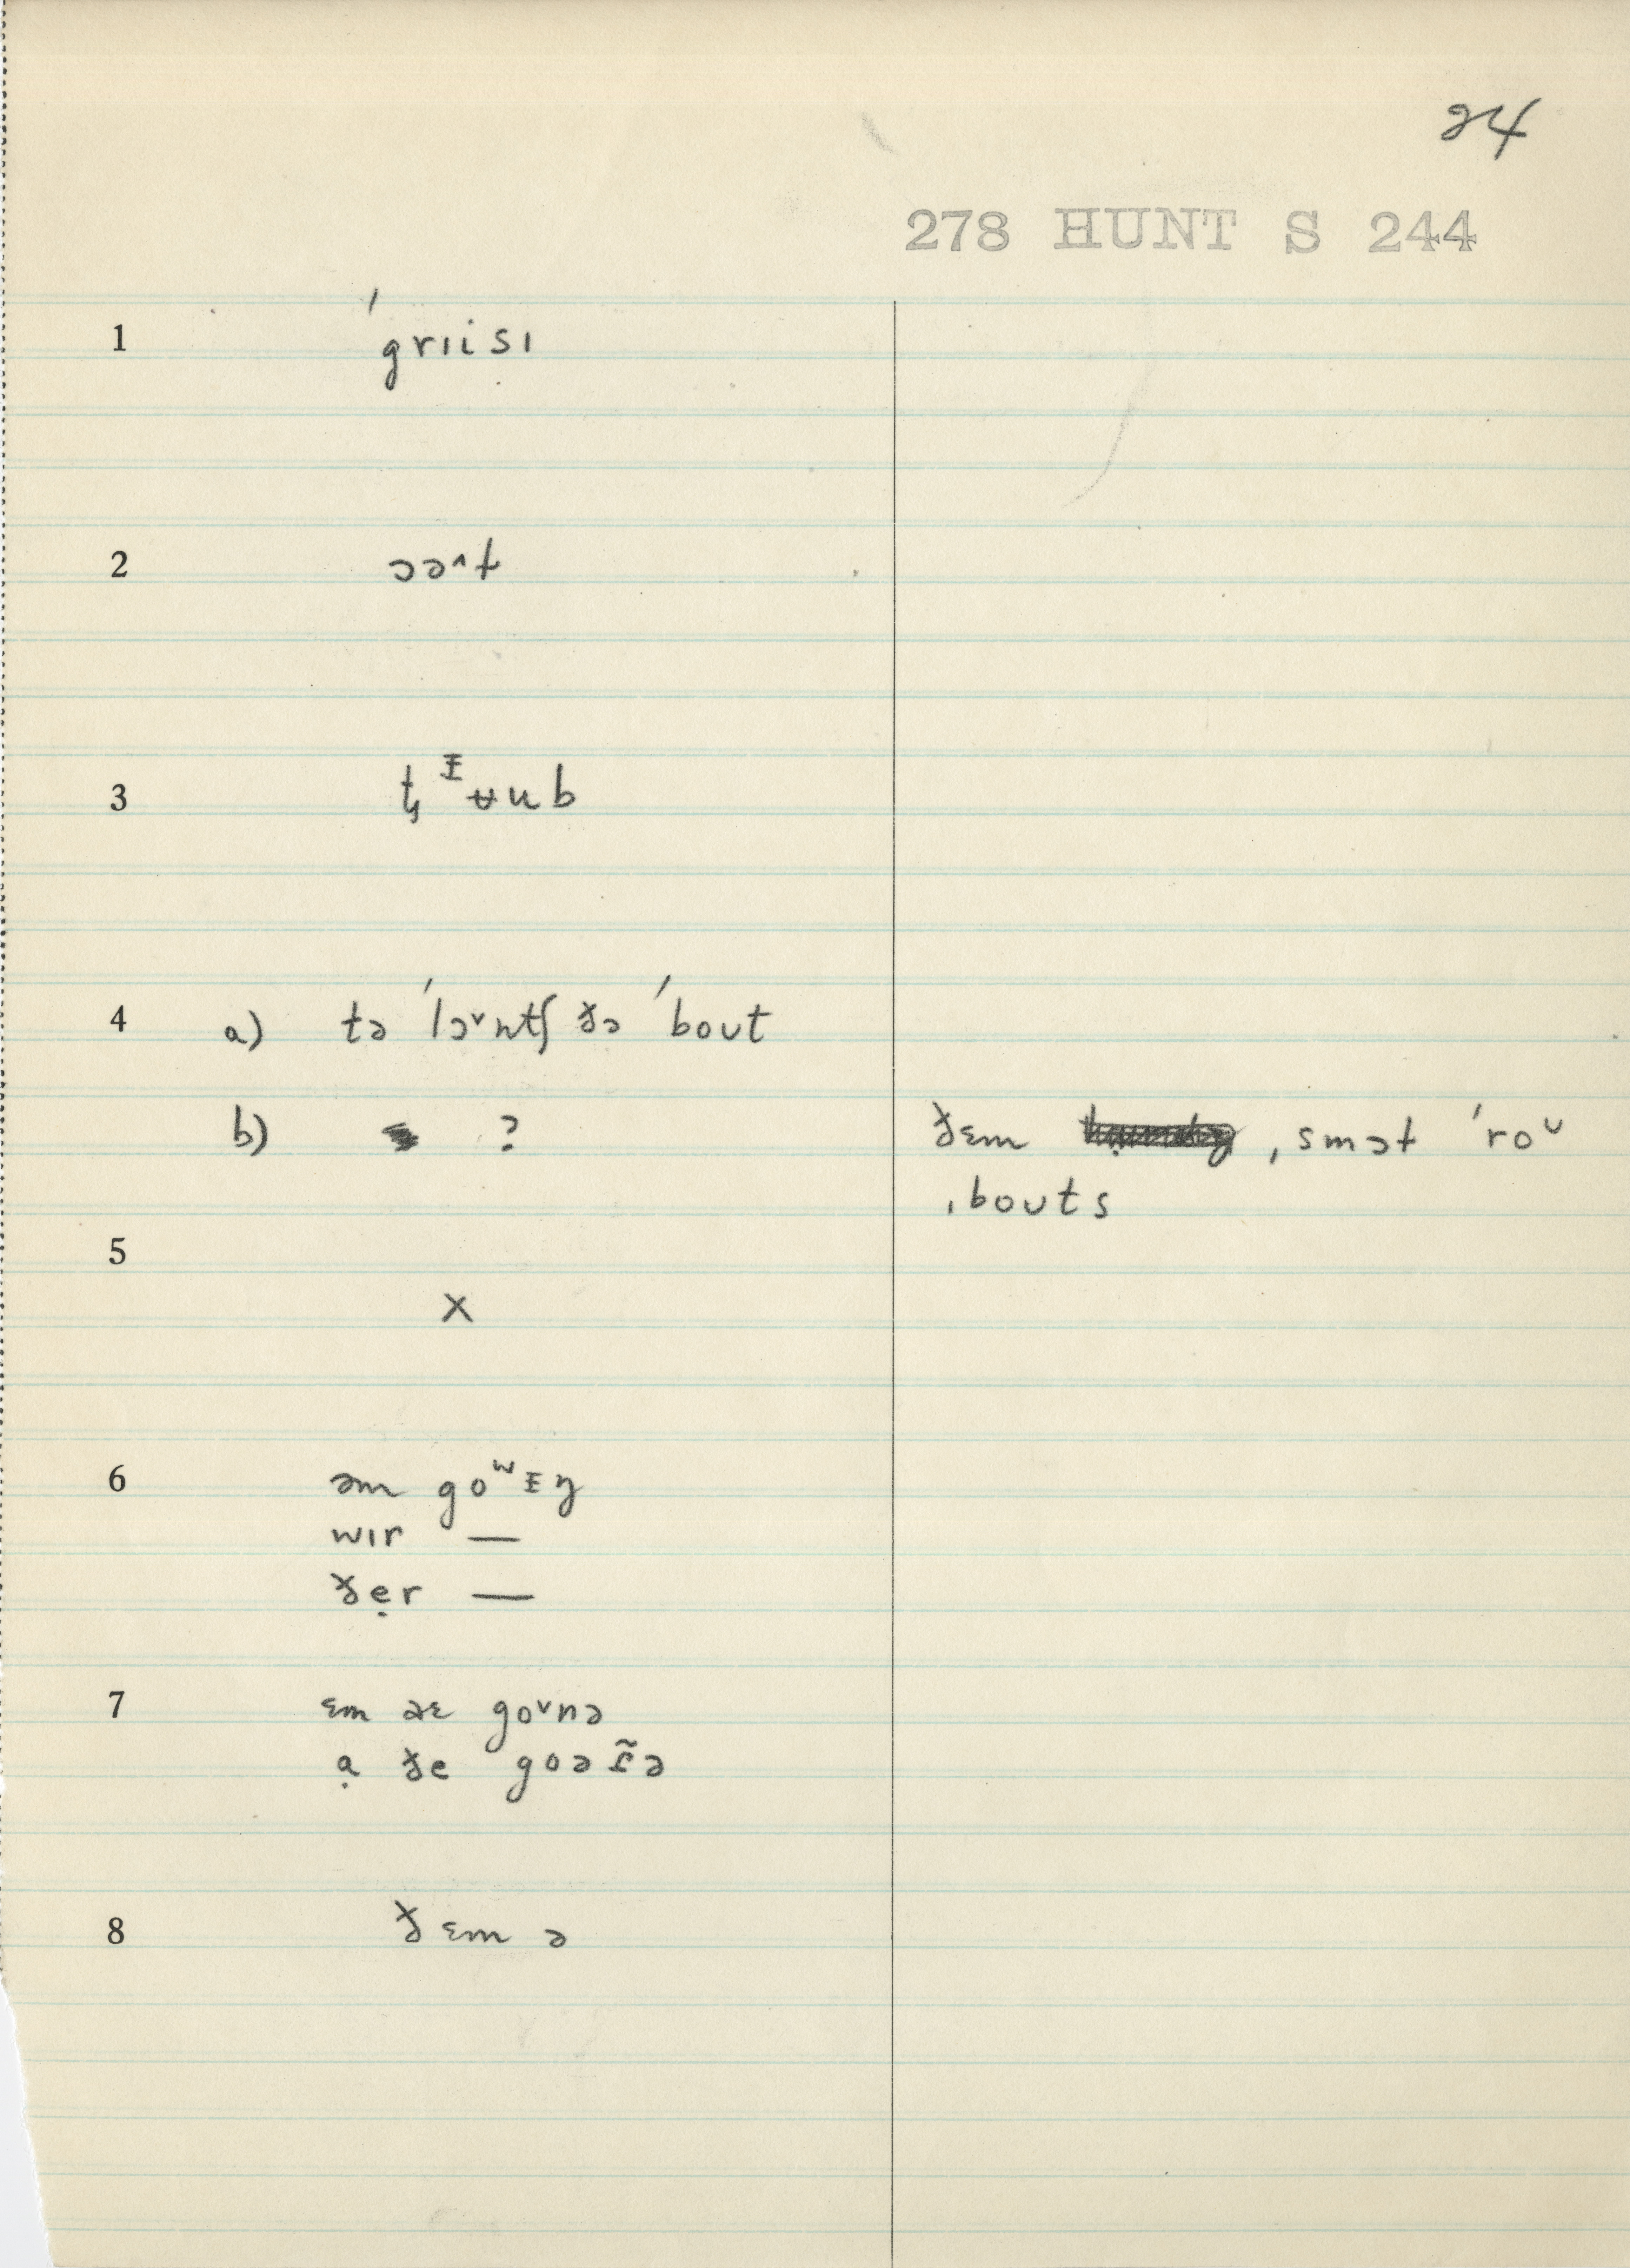 24
278 HUNT S 244
1 ˈgrɪisɪ
2 ɔə^ɫ
3 t̢ ᵻʉub
4 a) tə ˈlɔ˅ntʃ ðə ˈbout
b) ? ðɛm ˌsmɔɫ ˈro˅
ˌbouts
5 X
6 əm goʷᵻŋ
wɪr —
ðẹr —
7 ɛm əɛ go˅nə
ạ ðe goəɾ̃ə
8 ðɛm ə